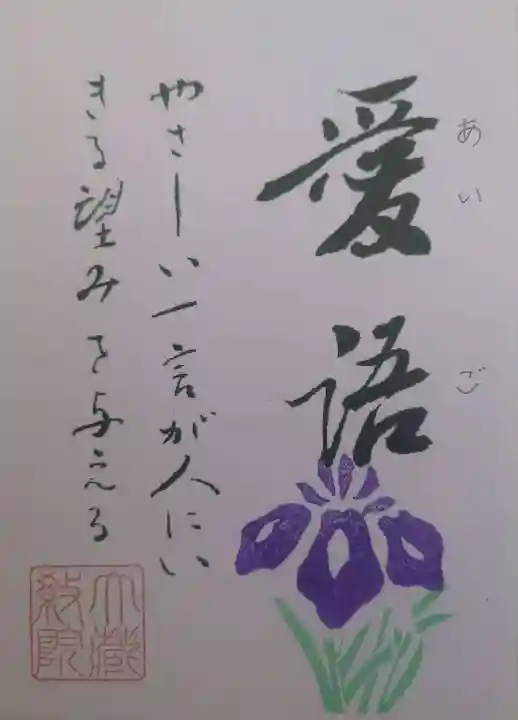 愛語
あいご
やさしい一言が人にい
きる望みを与える
大蔵
教院